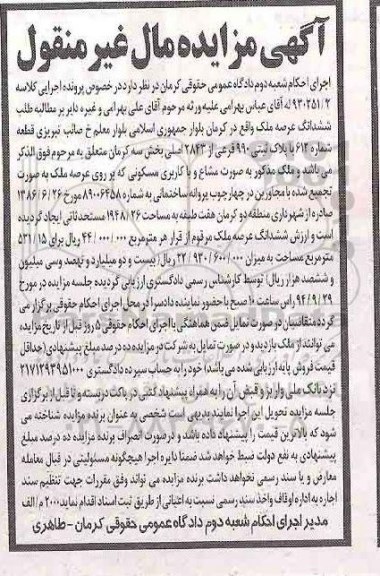 آگهی مزایده مال غیر منقول
اجرای احکام شعبه دوم دادگاه عمومی حقوقی کرمان در نظر دارد در خصوص پرونده اجرایی کلاسه
۹۳۰۲۵۱/۲ له آقای عباس بهرامی علیه ورثه مرحوم آقای علی بهرامی و غیره دایر بر مطالبه طلب
ششدانگ عرصه ملک واقع در کرمان بلوار جمهوری اسلامی بلوار معلم خ صائب تبریزی قطعه
شماره ۶۱۴ با پلاک ثبتی ۹۹۰ فرعی از ۲۸۴۳ اصلی بخش سه کرمان متعلق به مرحوم فوق الذکر
می باشد و ملک مذکور به صورت مشاع و با کاربری مسکونی که بر روی عرصه ملک به صورت
تجمیع شده با مجاورین در چهارچوب پروانه ساختمانی به شماره ۸۹۰۰۶۴۵۸ مورخ ۱۳۸۶/۶/۲۶
صادره از شهرداری منطقه دو کرمان هفت طبقه به مساحت ۱۹۴۸/۲۶ مستحدثاتی ایجاد گردیده
است و ارزش ششدانگ عرصه ملک مرقوم از قرار هر مترمربع ۴۴/۰۰۰/۰۰۰ ریال برای ۵۲۱/۱۵
مترمربع مساحت به میزان ۲۲/۹۳۰/۶۰۰/۰۰۰ ریال( بیست و دو میلیارد و نهصد وسی میلیون
و ششصد هزار ریال) توسط کارشناس رسمی دادگستری ارزیابی گردیده جلسه مزایده در مورخ
۹۴/۹/۲۹ راس ساعت ۱۰ صبح با حضور نماینده دادسرا در محل اجرای احکام حقوقی برگزار می
گردد متقاضیان در صورت تمایل ضمن هماهنگی با اجرای احکام حقوقی ۵ روز قبل از تاریخ مزایده
می توانند از ملک بازدید و در صورت تمایل به شرکت در مزایده ده درصد مبلغ پیشنهادی(حداقل
قیمت فروش پایه ارزیابی شده می باشد) خود را به حساب سپرده دادگستری ۲۱۷۱۲۹۳۹۵۱۰۰۰
نزد بانک ملی واریز و قبض آن را به همراه پیشنهاد کتبی در پاکت دربسته و تا قبل از برگزاری
جلسه مزایده تحویل این اجرا نمایند بدیهی است شخصی به عنوان برنده مزایده شناخته می
شود که بالاترین قیمت را پیشنهاد داده باشد و درصورت انصراف برنده مزایده ده درصد مبلغ
پیشنهادی به نفع دولت ضبط خواهد شد ضمنا دایره اجرا هیچگونه مسئولیتی در قبال معامله
معارض و یا سند رسمی نخواهد داشت برنده مزایده می تواند وفق مقررات جهت تنظیم سند
اجاره به اداره اوقاف واخذ سند رسمی نسبت به اعیانی از طریق ثبت اسناد اقدام نماید ۲۰۰۰ م الف
مدیر اجرای احکام شعبه دوم دادگاه عمومی حقوقی کرمان - طاهری